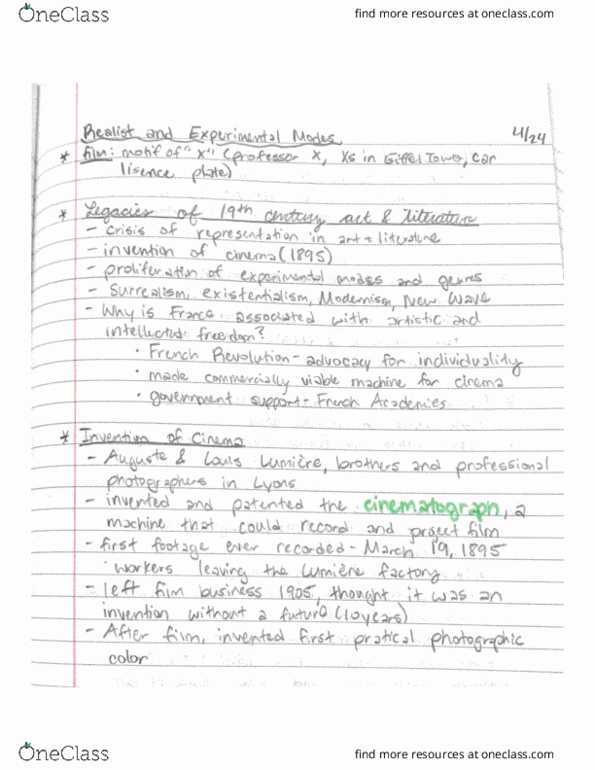 OneClass
find more resources at oneclass.com
Realist and Experimental Modes 4/24
* film: motif of "X" (professor X, Xs in Eiffel Tower, car
lisence plate)
* Legacies of 19th century art & literature
- crisis of representation in art + literature
- invention of cinema (1895)
- proliferation of experimental modes and genres
- Surrealism, existentialism, Modernism, New Wave
- Why is France associated with artistic and
intellectual freedom?
• French Revolution - advocacy for individuality
• made commercially viable machine for cinema
• government support - French Academies
* Invention of Cinema
- Auguste & Louis Lumière, brothers and professional
photographers in Lyons
- invented and patented the cinematograph, a
machine that could record and project film
- first footage ever recorded - March 19, 1895
workers leaving the Lumière factory
- left film business 1905, thought it was an
invention without a future (10 years)
- After film, invented first pratical photographic
color
OneClass
find more resources at oneclass.com